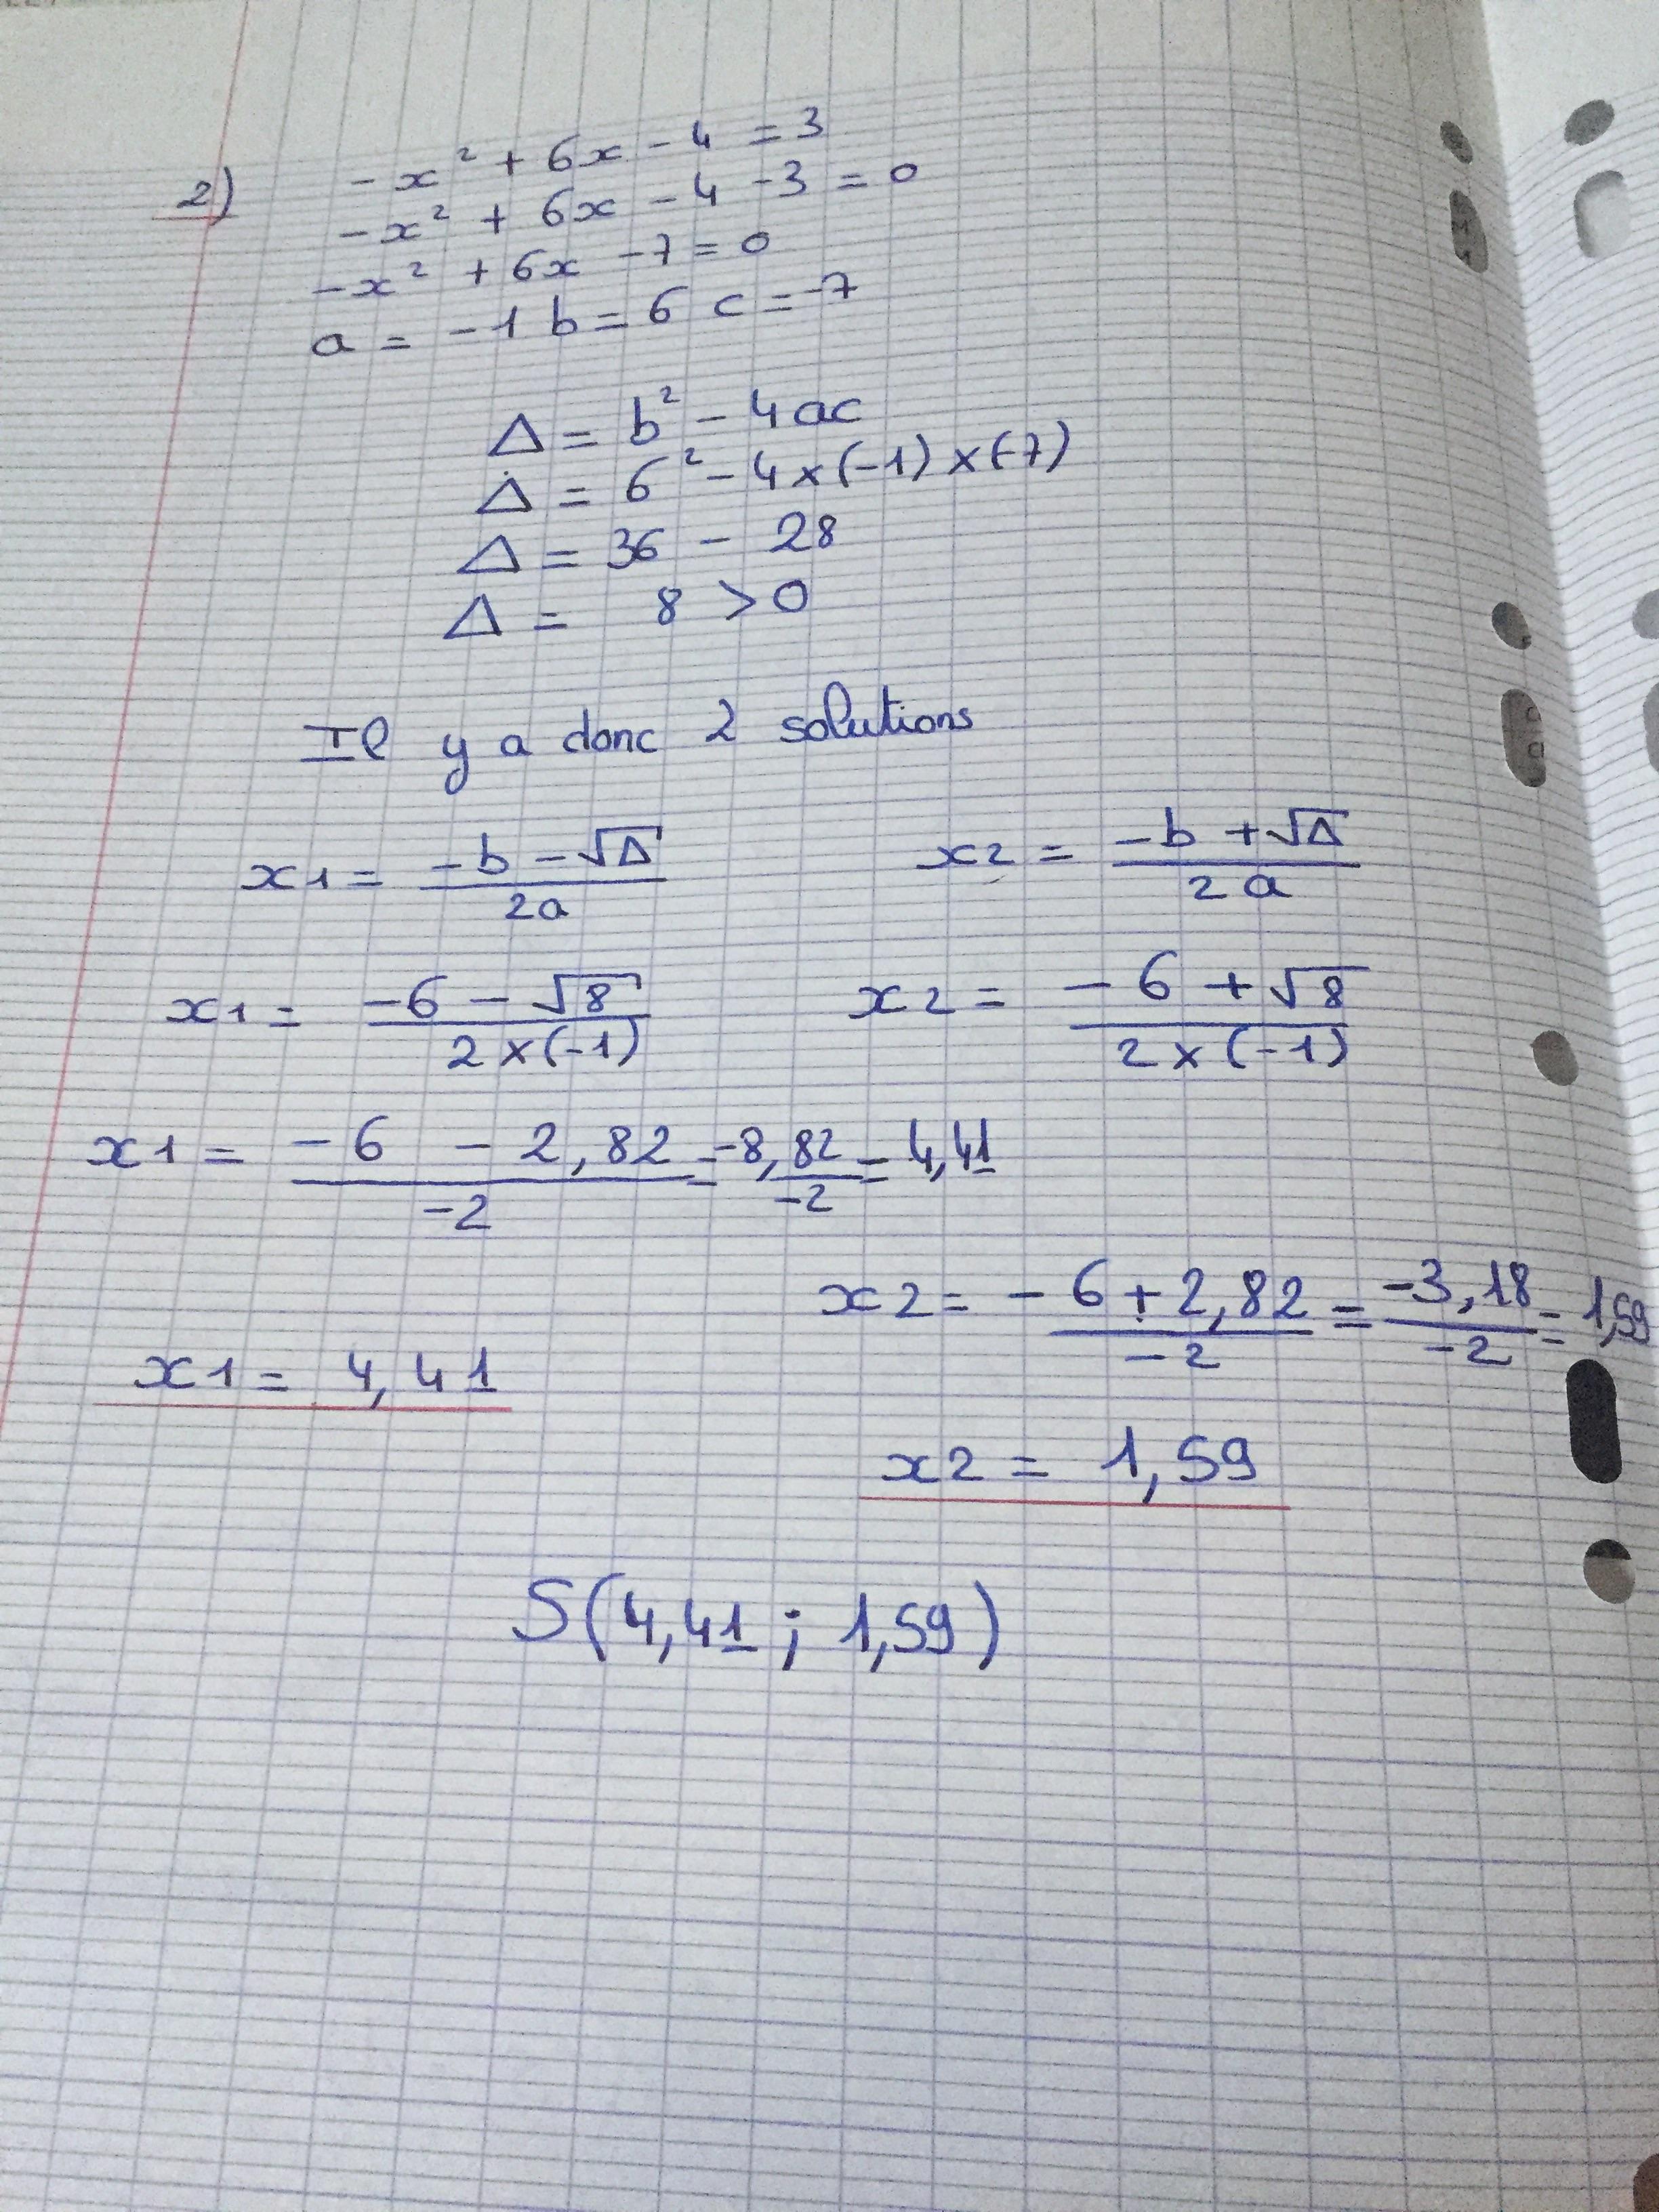 2) -x² + 6x - 4 = 3
-x² + 6x - 4 - 3 = 0
-x² + 6x - 7 = 0
a = -1 b = 6 c = -7
Δ = b² - 4ac
Δ = 6² - 4 × (-1) × (-7)
Δ = 36 - 28
Δ = 8 > 0
Il y a donc 2 solutions
x1 = (-b - √Δ) / 2a
x2 = (-b + √Δ) / 2a
x1 = (-6 - √8) / (2 × (-1))
x2 = (-6 + √8) / (2 × (-1))
x1 = (-6 - 2,82) / -2 = -8,82 / -2 = 4,41
x2 = (-6 + 2,82) / -2 = -3,18 / -2 = 1,59
x1 = 4,41
x2 = 1,59
S(4,41 ; 1,59)